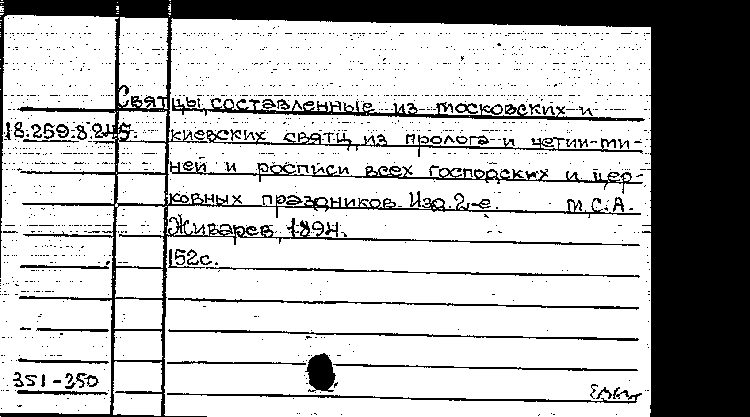 Святцы, составленные из московских и
18.259.8.245. киевских святц, из пролога и четии-ми-
ней и росписи всех господских и цер-
ковных праздников. Изд. 2-е. М. С.А.
Живарев, 1894.
152с.
351-350